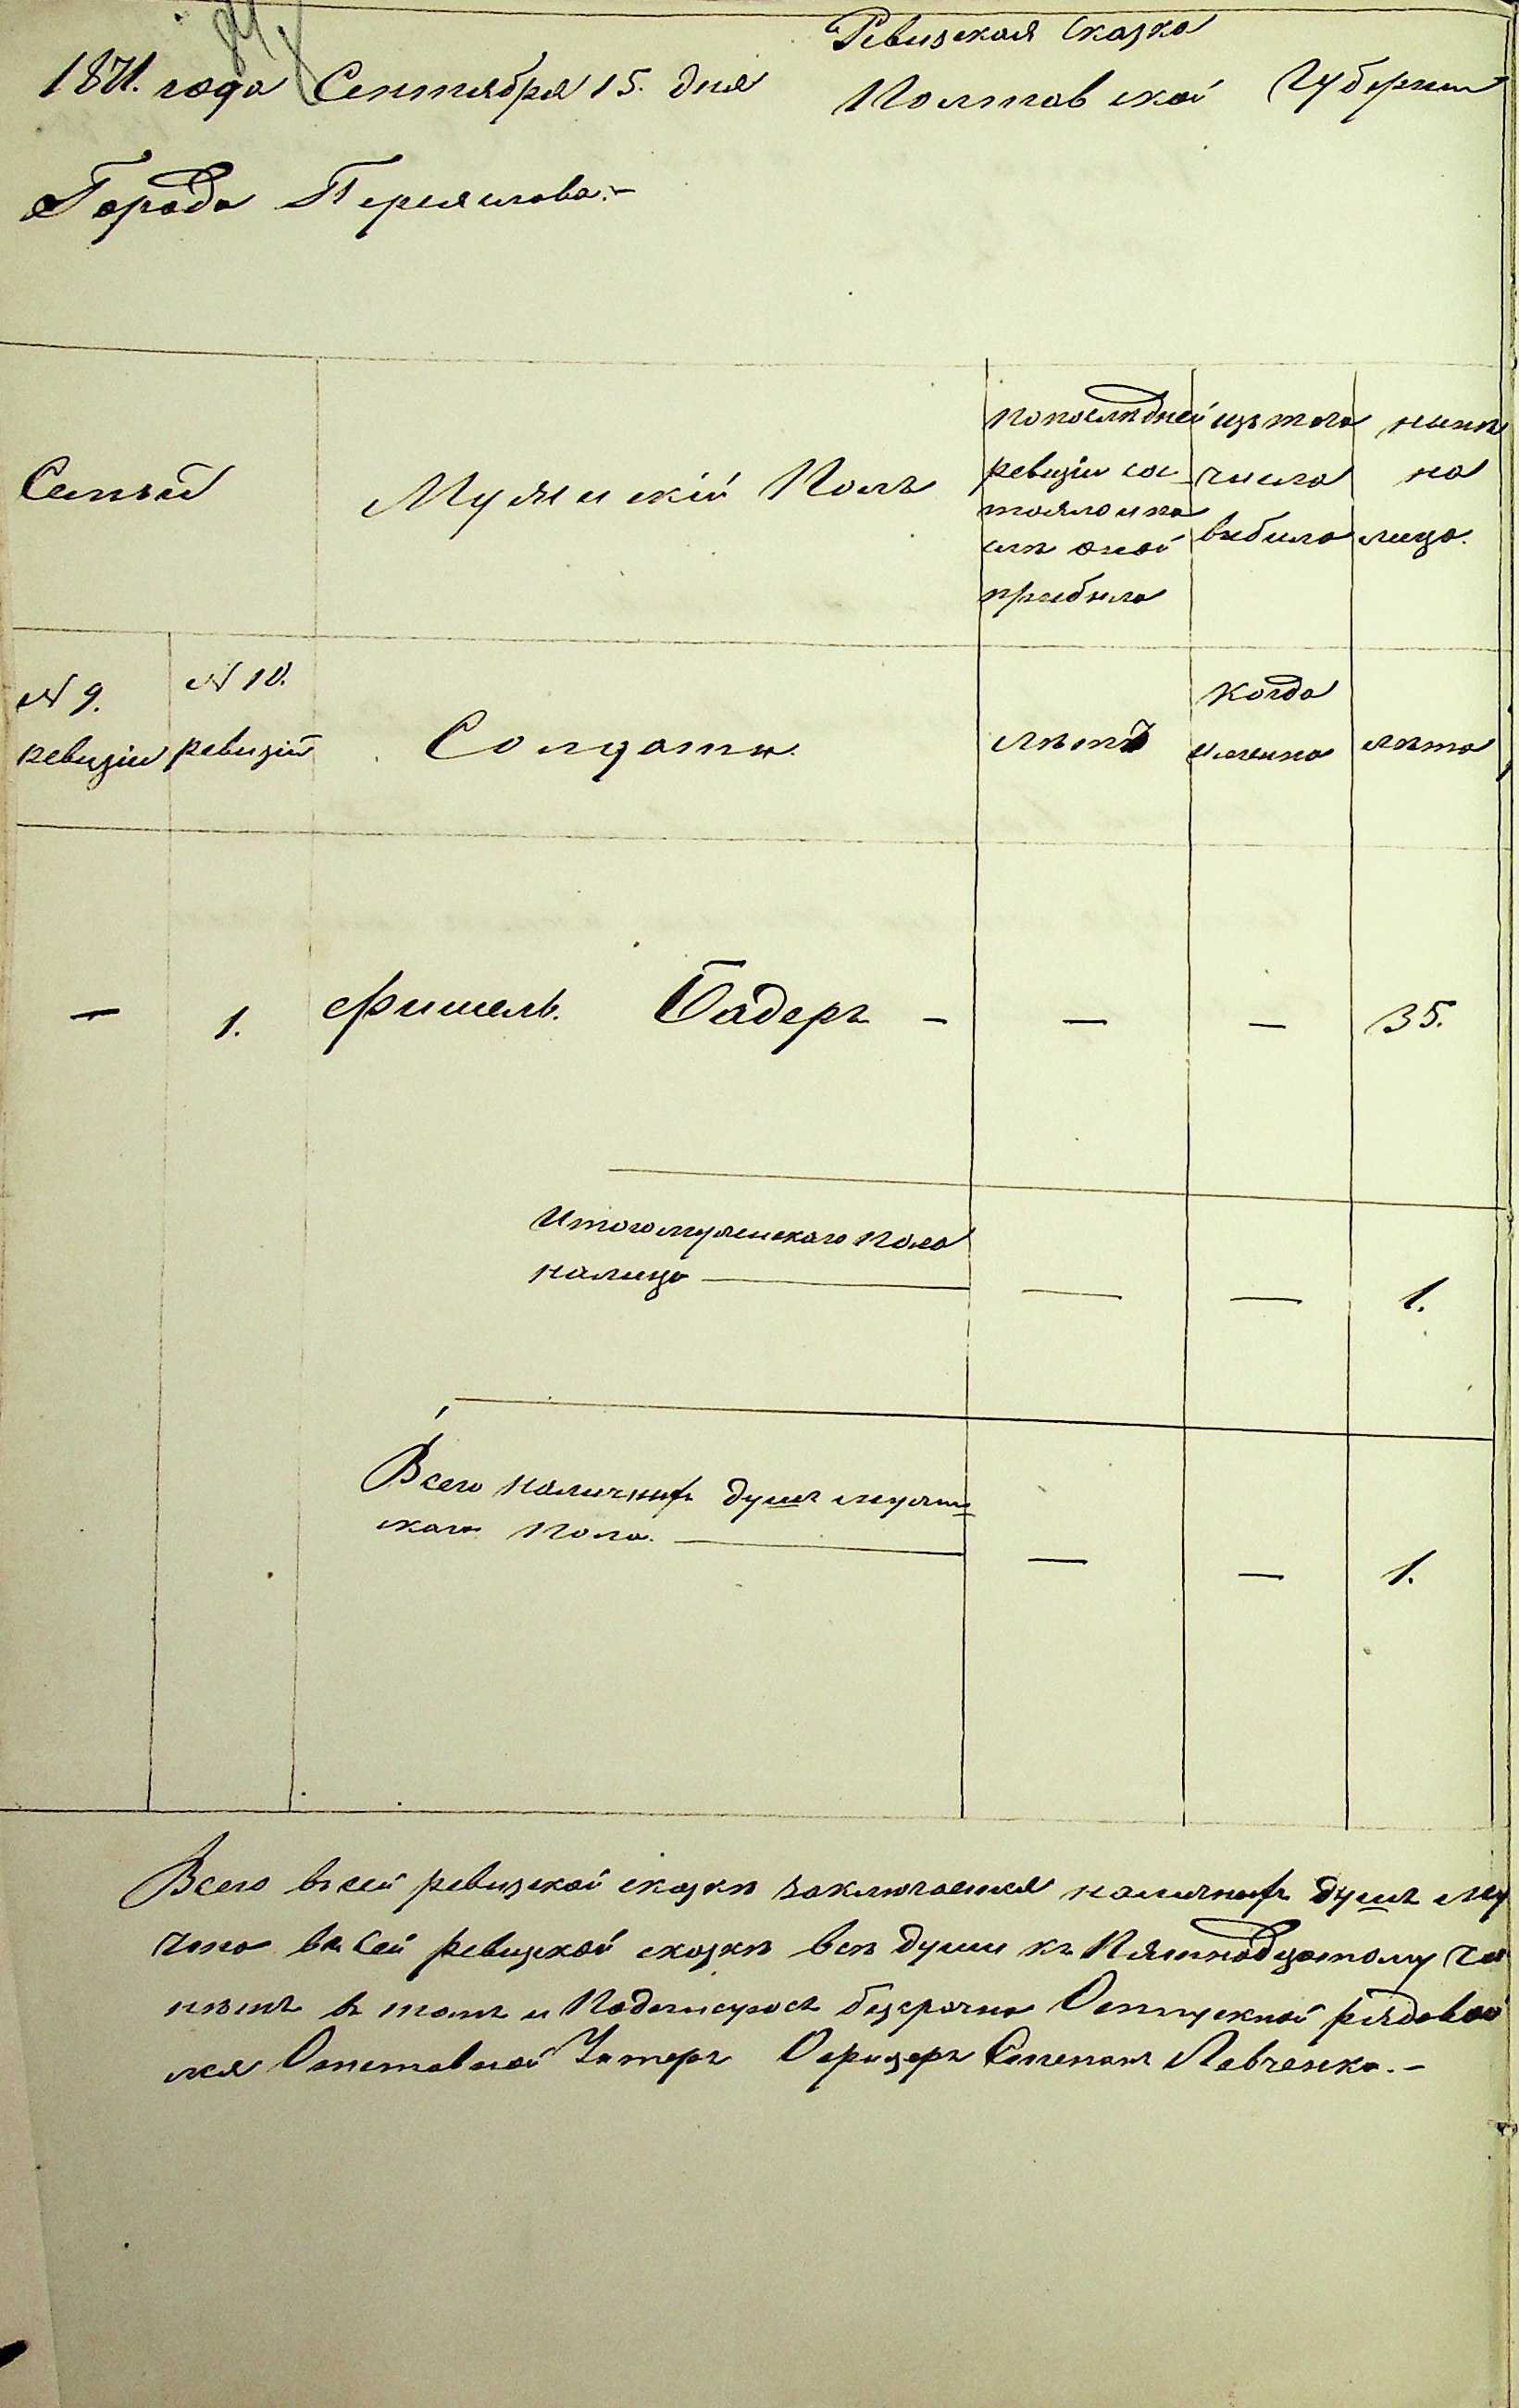 Ревизская Сказка
1871. года Сентября 15. дня Полтавской Губернии
Города Переяслова.-
Семьи
Мужескій Полъ
попослѣдней
ревизіи сос-
тояло и по
слѣ оной
прибыло
изъ того
числа
выбыло
нынѣ
на
лицо.
№ 9.
ревизіи
№ 10.
ревизіи
Солдаты.
лѣтъ
когда
именно
лѣта
— 1. Фишель. Бадеръ - — — 35.
Итого мужескаго Пола
налицо — — 1.
Всего наличныхъ душъ мужес=
скаго Пола. — — 1.
Всего въ сей ревизской сказкѣ заключается наличныхъ душъ му
чено въ сей ревизской сказкѣ всѣ души къ Пятнадцатому
нѣтъ въ томъ и Подписуюсь безсрочно Отпускной рядовой
лся Отставной Унтеръ Офицеръ Степанъ Левченко.-